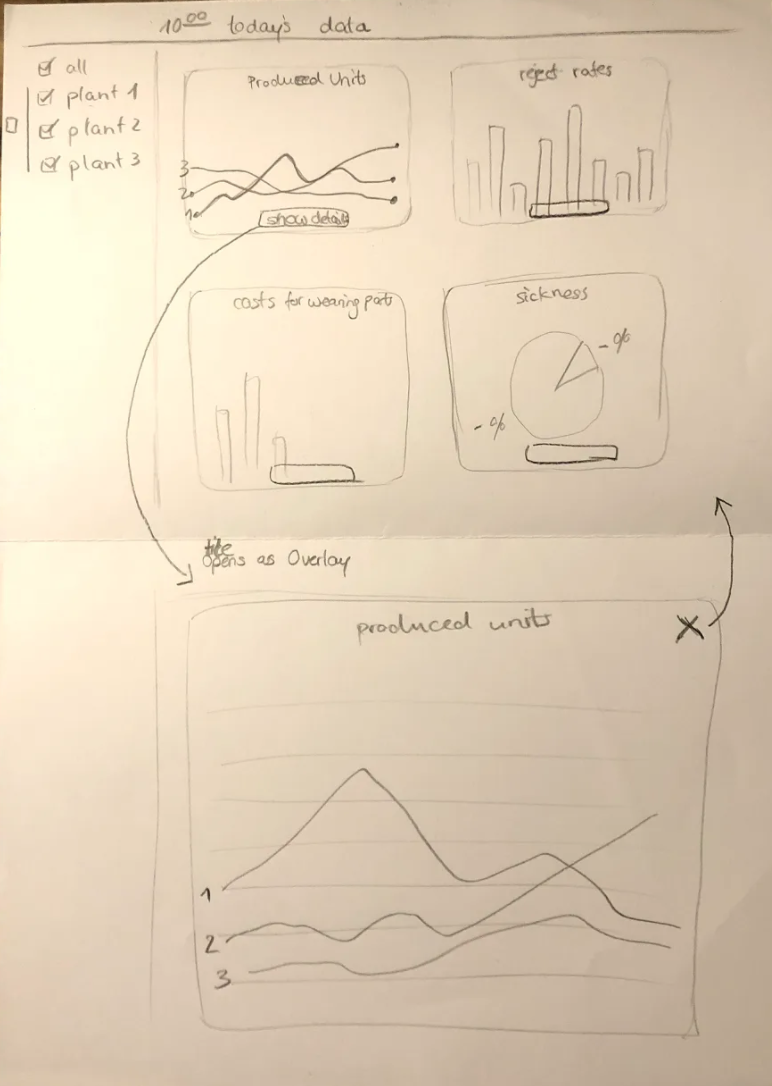 10⁰⁰ today's data
all
plant 1
plant 2
plant 3
Produced Units
3
2
1
show details
reject rates
costs for wearing parts
sickness
- %
- %
tile
Opens as Overlay
produced units
X
1
2
3